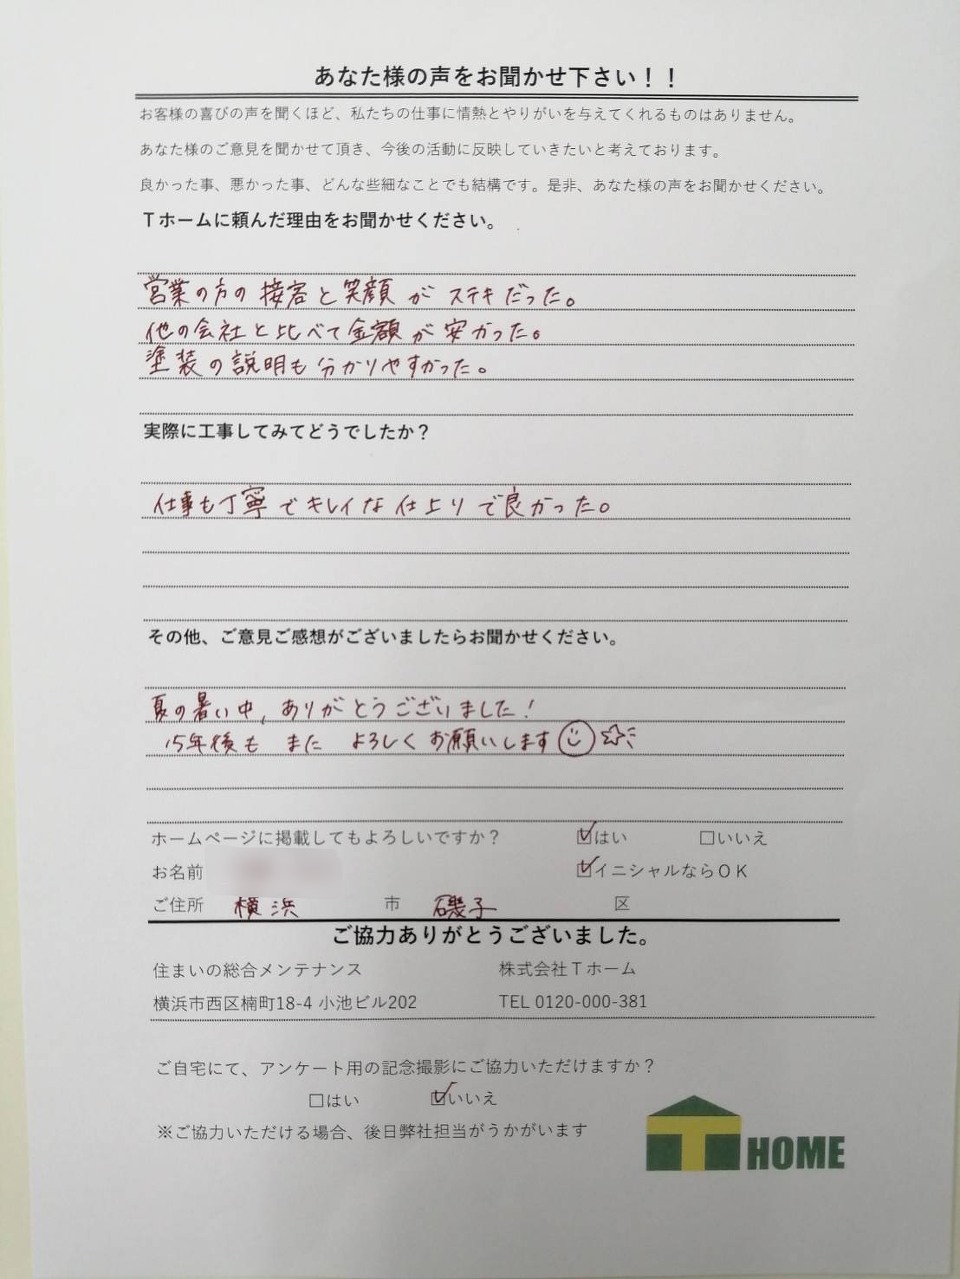 あなた様の声をお聞かせ下さい！！
お客様の喜びの声を聞くほど、私たちの仕事に情熱とやりがいを与えてくれるものはありません。
あなた様のご意見を聞かせて頂き、今後の活動に反映していきたいと考えております。
良かった事、悪かった事、どんな些細なことでも結構です。是非、あなた様の声をお聞かせください。
Ｔホームに頼んだ理由をお聞かせください。
営業の方の接客と笑顔がステキだった。
他の会社と比べて金額が安かった。
塗装の説明も分かりやすかった。
実際に工事してみてどうでしたか？
仕事も丁寧でキレイな仕上りで良かった。
その他、ご意見ご感想がございましたらお聞かせください。
夏の暑い中、ありがとうございました！
15年後も また よろしくお願いします
ホームページに掲載してもよろしいですか？ ☑はい □いいえ
お名前 ☑イニシャルならＯＫ
ご住所 横浜 市 磯子 区
ご協力ありがとうございました。
住まいの総合メンテナンス 株式会社Ｔホーム
横浜市西区楠町18-4 小池ビル202 TEL 0120-000-381
ご自宅にて、アンケート用の記念撮影にご協力いただけますか？
□はい ☑いいえ
※ご協力いただける場合、後日弊社担当がうかがいます
T HOME